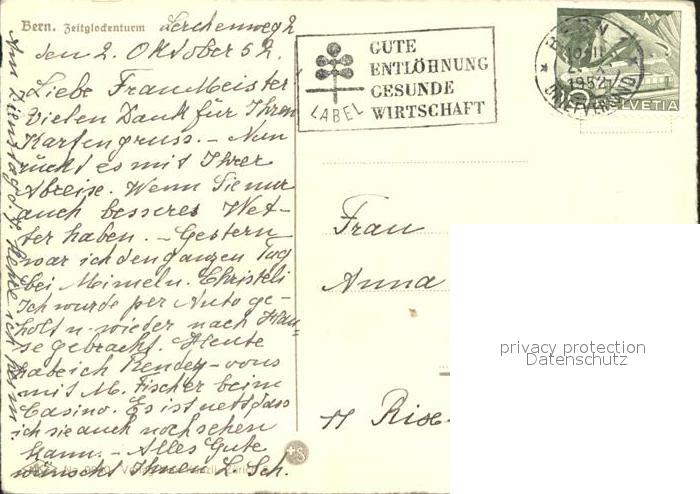 Bern. Zeitglockenturm
Lerchenweg 2
den 2. Oktober 52.
Liebe Frau Meister
Vielen Dank für Ihren
Kartengruss. – Nun
rückt es mit Ihrer
Abreise. Wenn Sie nur
auch besseres Wet-
ter haben. – Gestern
war ich den ganzen Tag
bei Mimeln. Christeli
Ich wurde per Auto ge-
holt u. wieder nach Hau-
se gebracht. Heute
habe ich Rendez-vous
mit M. Fischer beim
Casino. Es ist nett dass
ich sie auch noch sehen
kann. – Alles Gute
wünscht Ihnen L. Sch.
LABEL
GUTE
ENTLÖHNUNG
GESUNDE
WIRTSCHAFT
BERN 1
1952
BRIEFVERSAND
HELVETIA
Frau
Anna
privacy protection
Datenschutz